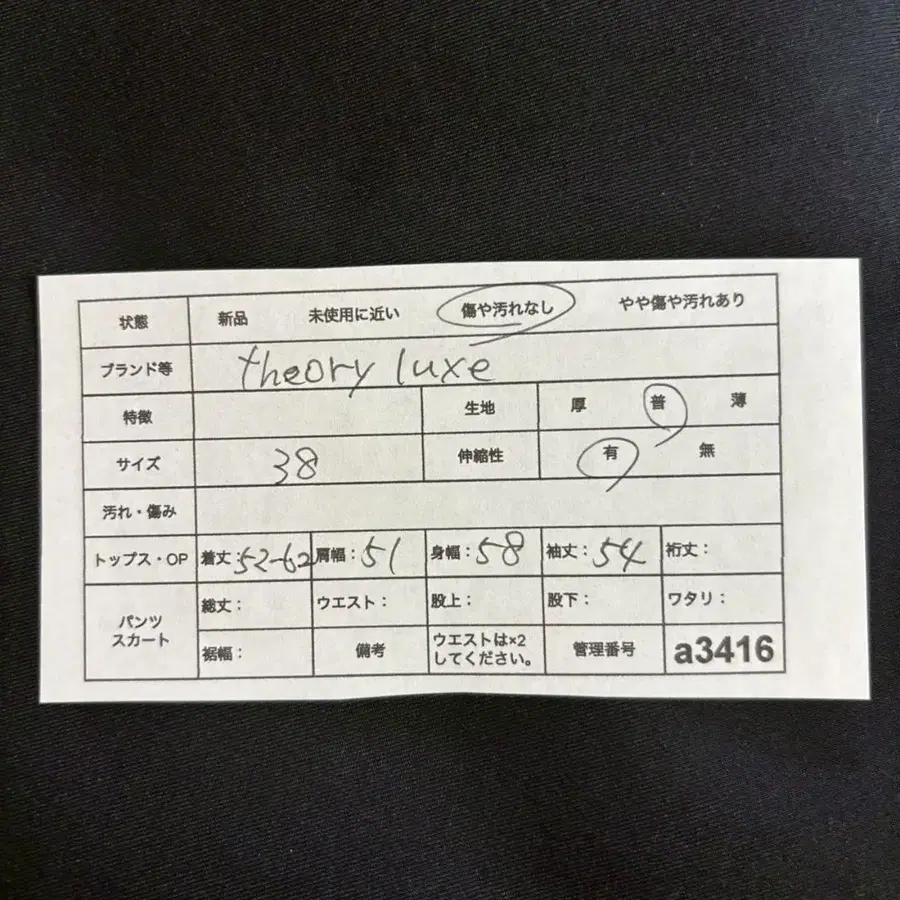 状態 新品 未使用に近い 傷や汚れなし やや傷や汚れあり
ブランド等 theory luxe
特徴 生地 厚 普 薄
サイズ 38 伸縮性 有 無
汚れ・傷み
トップス・OP 着丈:52-62 肩幅:51 身幅:58 袖丈:54 裄丈:
パンツ スカート 総丈: ウエスト: 股上: 股下: ワタリ:
裾幅: 備考 ウエストは×2してください。 管理番号 a3416